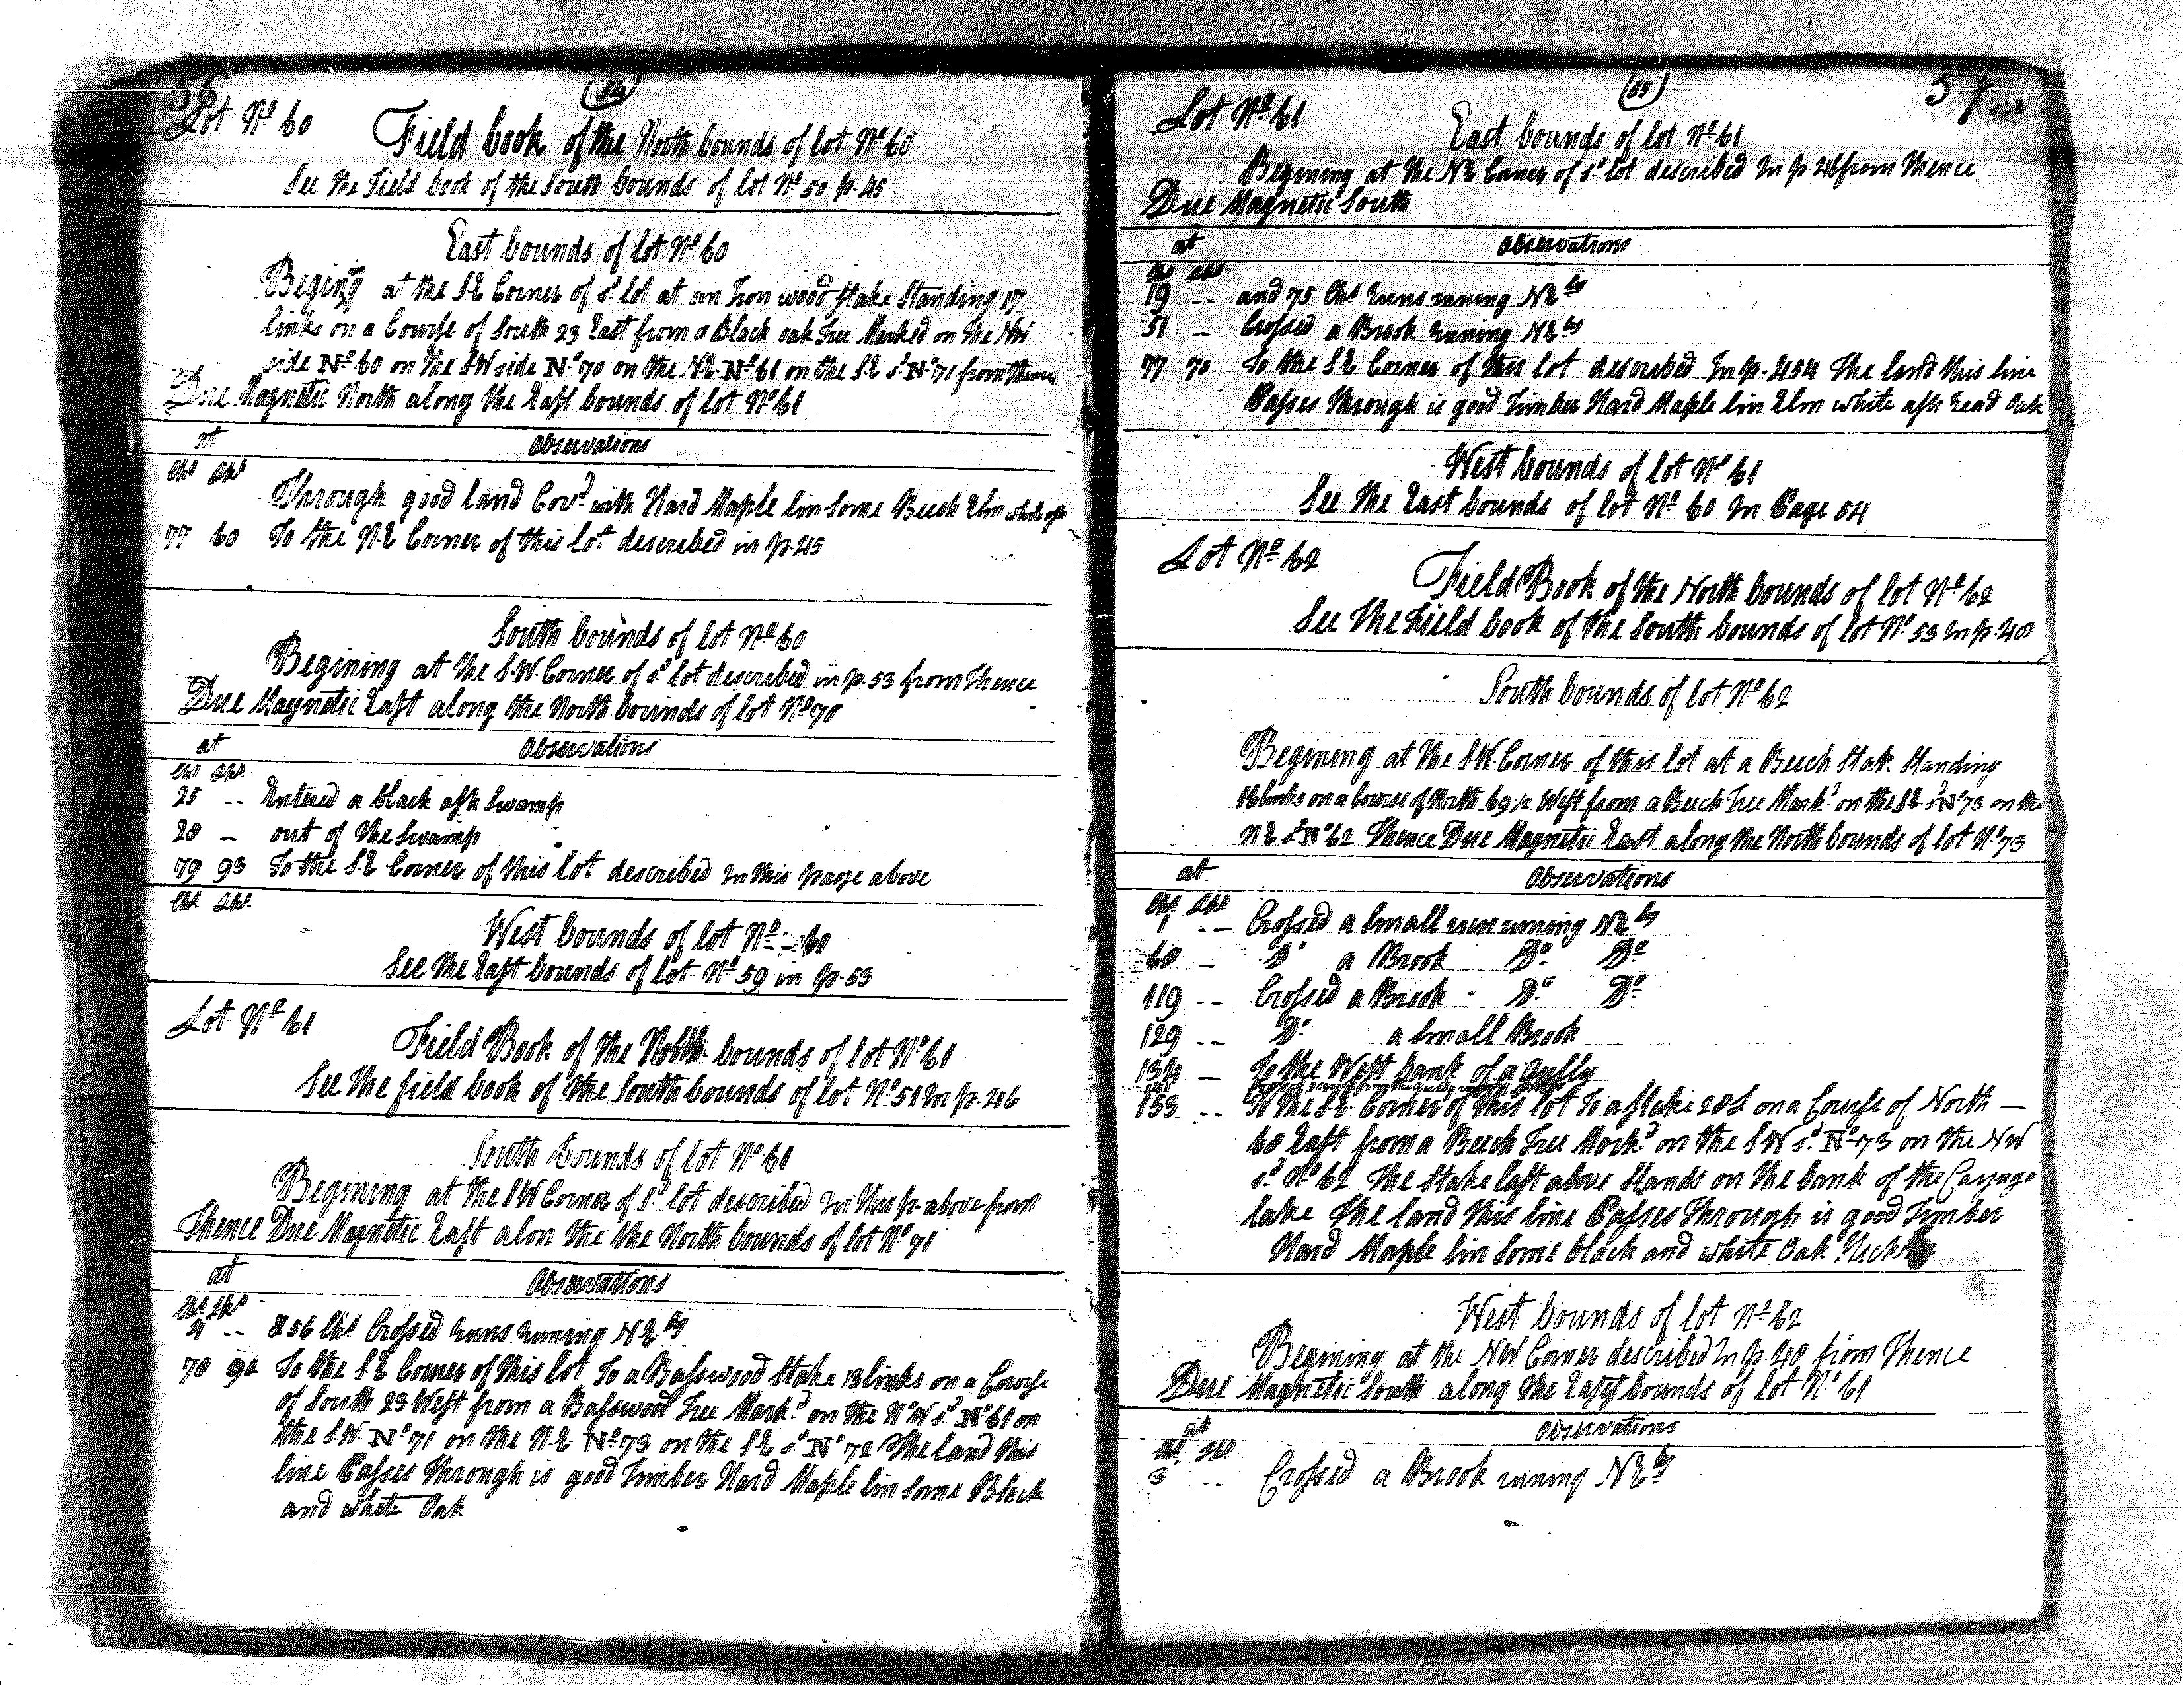 56
(54)
Lot Nº 60
Field book of the North bounds of lot Nº 60
See the Field book of the South bounds of lot Nº 50 p. 45
East bounds of lot Nº 60
Begining at the SE Corner of sd lot at an Iron wood stake Standing 17
links on a Course of South 23 East from a black oak tree Marked on the NW
side Nº 60 on the SW side Nº 70 on the NE Nº 61 on the SE sd Nº 71 from thence
Due Magnetic North along the East bounds of lot Nº 61
at Observations
Chs Lks
Through good land Covd with Hard Maple lin Some Beech Elm white ash
77 60 To the NE Corner of this lot described in p. 45
South bounds of lot Nº 60
Begining at the S.W. Corner of sd lot described in p. 53 from Thence
Due Magnetic East along the North bounds of lot Nº 70
at Observations
Chs Lks
25 -- Entered a black ash Swamp
28 - out of the Swamp
79 93 To the SE Corner of this lot described In this page above
Chs Lks
West bounds of lot Nº 60
See the East bounds of lot Nº 59 in p. 53
Lot Nº 61
Field Book of the North bounds of lot Nº 61
See the field book of the South bounds of lot Nº 51 In p. 46
South bounds of lot Nº 61
Begining at the SW Corner of sd lot described In this p. above from
Thence Due Magnetic East alon the the North bounds of lot Nº 71
at Observations
Chs Lks
-- & 56 Chs Crossed runs runing NEly
To the SE Corner of this lot To a Basswood Stake 13 links on a Course
of South 23 West from a Basswood Tree Markd on the N.W sd Nº 61 on
the S.W. Nº 71 on the N.E Nº 73 on the SE sd Nº 72 The land this
line Passes through is good Timber Hard Maple lin Some Black
and white Oak
57
(55)
Lot Nº 61
East bounds of lot Nº 61
Begining at the NE Corner of sd lot described In p. 46 from Thence
Due Magnetic South
at Observations
Chs Lks
19 -- and 75 Chs runs runing NEly
51 - Crossed a Brook runing NEly
77 70 To the SE Corner of this lot described In p. 54 The land this line
Passes through is good Timber Hard Maple lin Elm white ash read Oak
West bounds of lot Nº 61
See the East bounds of lot Nº 60 In Page 54
Lot Nº 62
Field Book of the North bounds of lot Nº 62
See the Field book of the South bounds of lot Nº 53 In p. 48
South bounds of lot Nº 62
Begining at the SW. Corner of this lot at a Beech Stak Standing
16 links on a Course of North 69 1/2 West from a Beech Tree Markd on the SE sd Nº 73 on the
NE sd Nº 62 Thence Due Magnetic East along the North bounds of lot Nº 73
at Observations
Chs Lks
1 -- Crossed a Small run runing NEly
60 - Dº a Brook Dº Dº
119 -- Crossed a Brook - Dº Dº
129 -- Dº a Small Brook
- To the West bank of a Gully
153 -- To the SE Corner of this lot To a Stake 28 L on a Course of North -
60 East from a Beech Tree Markd on the SW sd Nº 73 on the NW
sd Nº 62 The Stake last above Stands on the bank of the Cayuga
Lake The land this line Passes Through is good Timber
Hard Maple lin Some black and white Oak
West bounds of lot Nº 62
Begining at the NW Corner described In p. 48 from Thence
Due Magnetic South along the East bounds of lot Nº 61
at Observations
Chs Lks
3 -- Crossed a Brook runing NEly